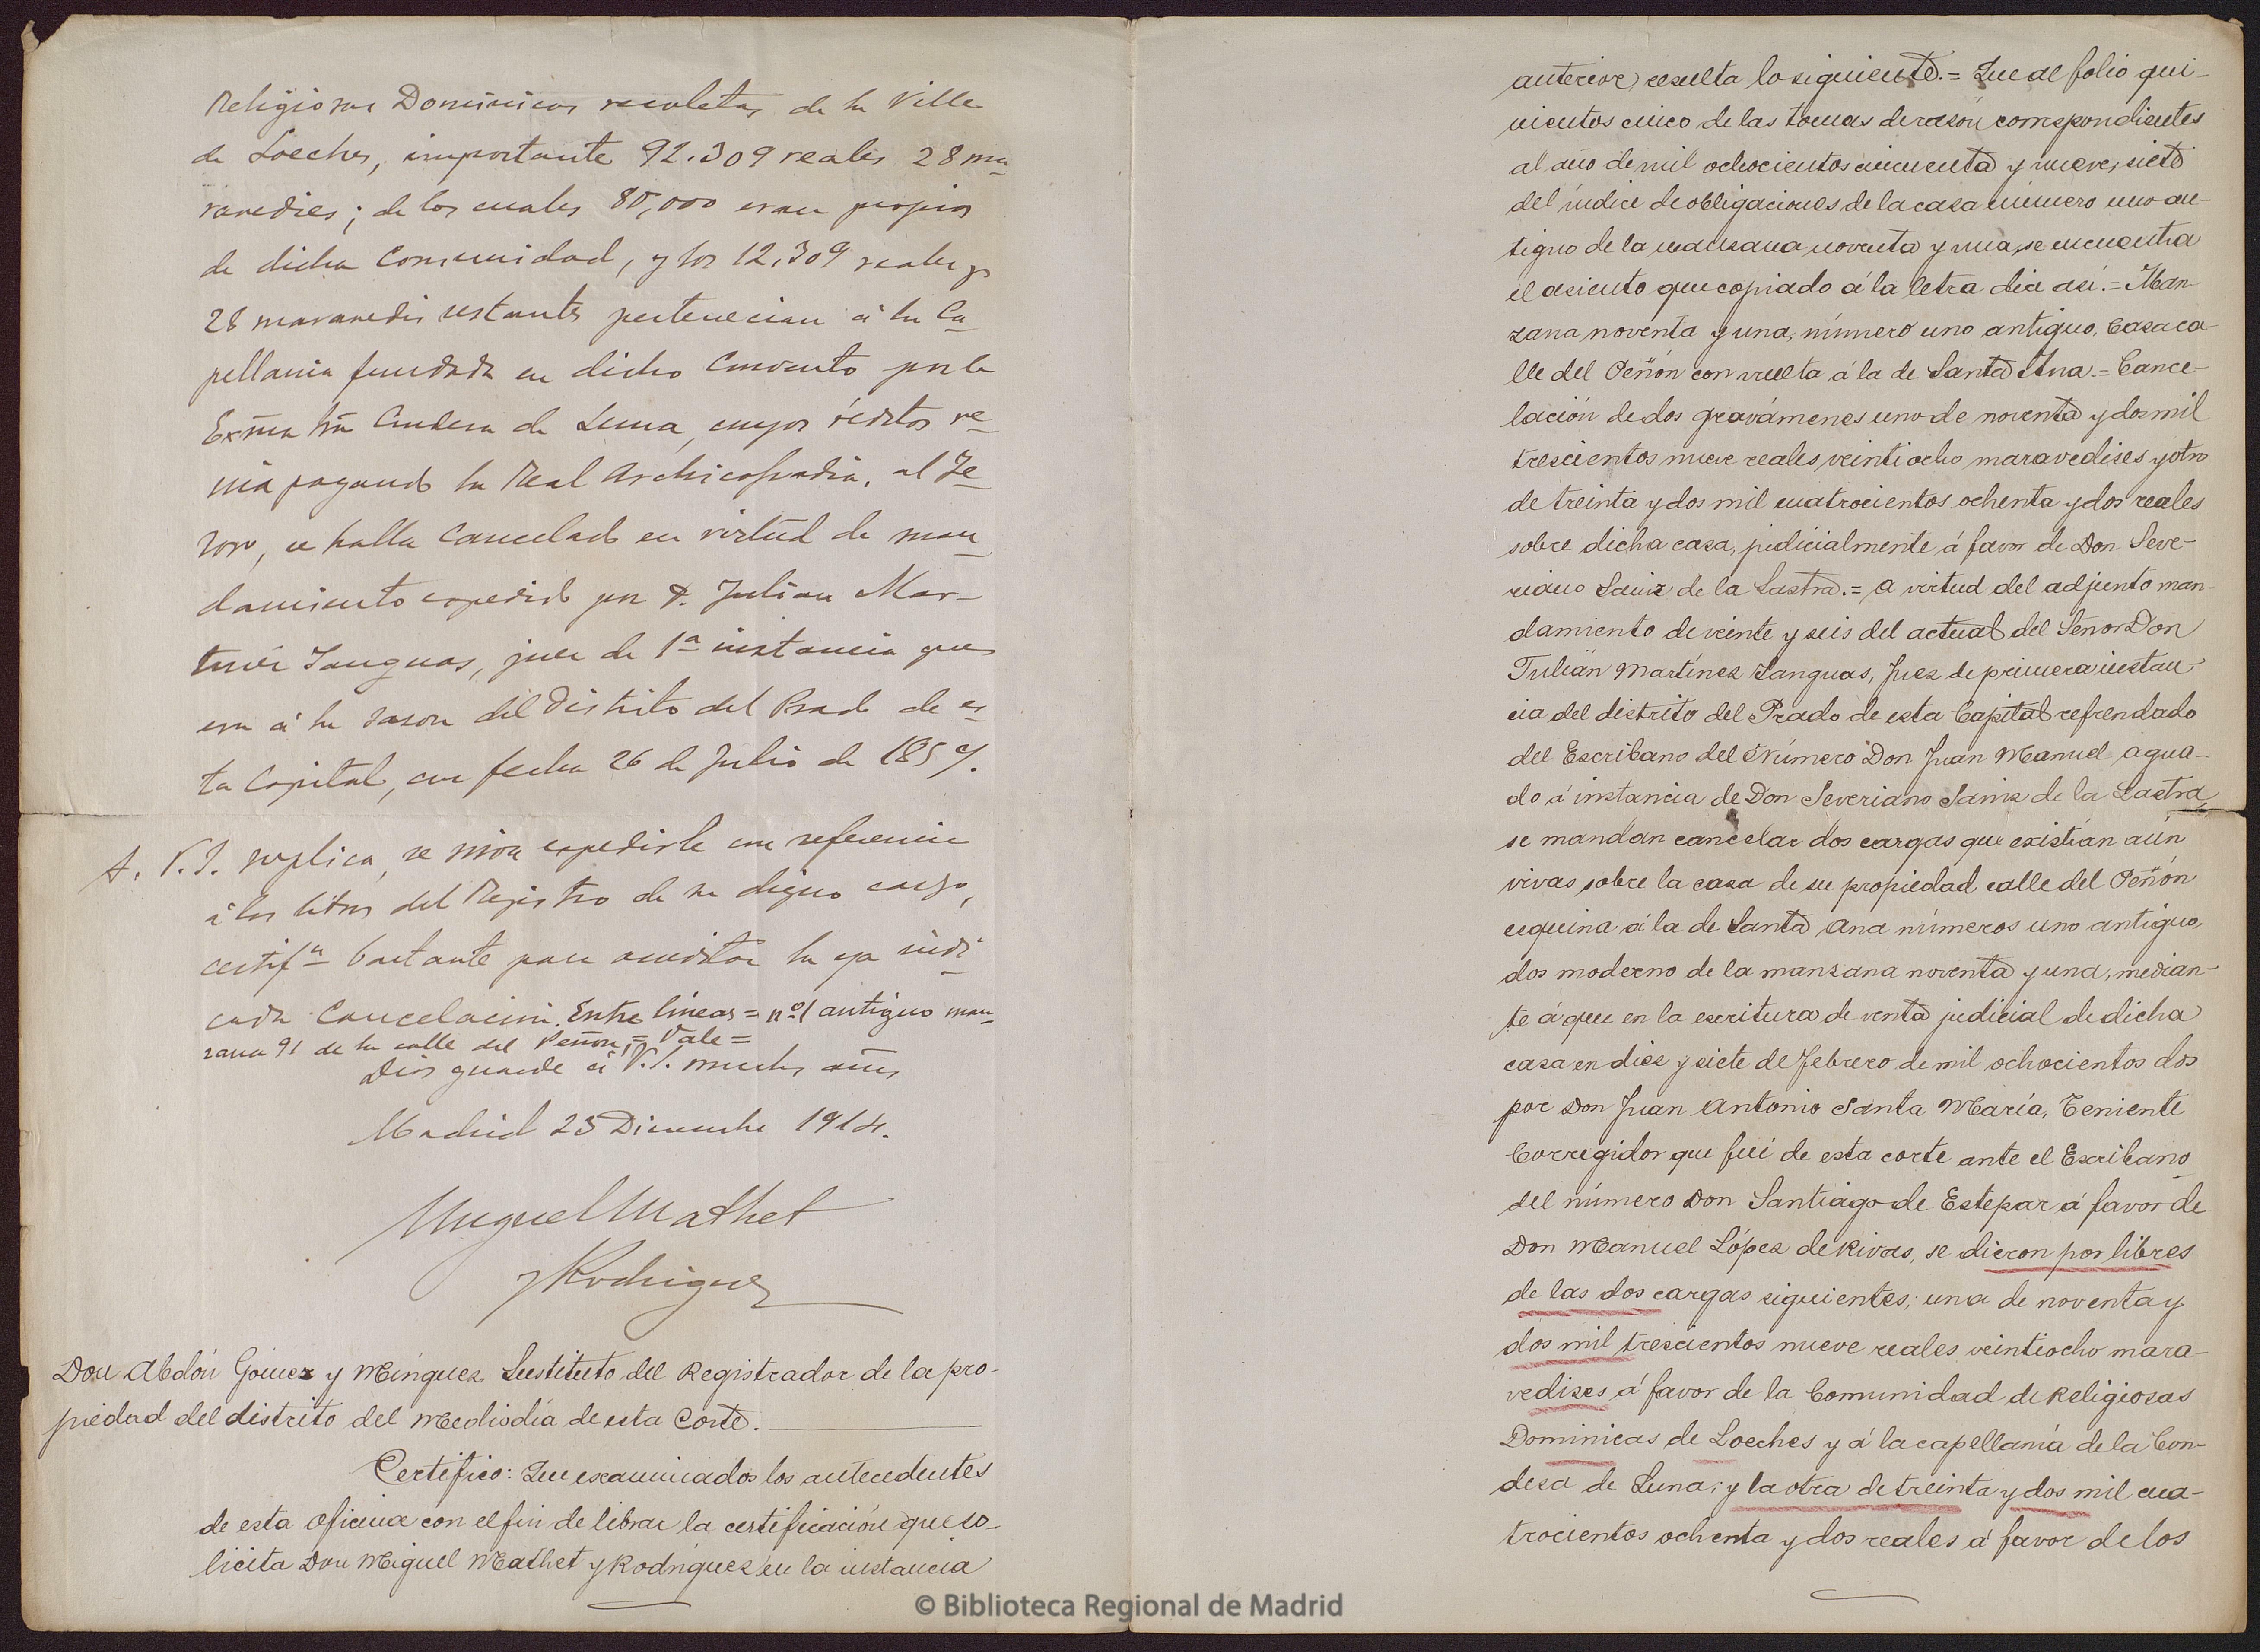 Religiosas Dominicas recoletas de la Villa
de Loeches, importante 92.309 reales 28 ma-
ravedies; de los cuales 80,000 eran propios
de dicha Comunidad, y los 12,309 reales y
28 maravedis restantes pertenecian á la Ca-
pellania fundada en dicho Convento por la
Exma Sra Condesa de Luna, cuyos réditos ve-
nia pagando la Real Archicofradia, al Te-
soro, se halla cancelado en virtud de man-
damiento expedido por D. Julian Mar-
tinez Yanguas, juez de 1ª instancia que
era á la sazon del Distrito del Prado de es-
ta Capital, con fecha 26 de Julio de 1859.
A. V.I. suplica, se sirva expedirle con referencia
á los libros del Registro de su digno cargo,
certifn bastante para acreditar la ya indi-
cada Cancelacion. Entre lineas = nº 1 antiguo man-
zana 91 de la calle del Peñon, = Vale =
Dios guarde á V.I. muchos años
Madrid 23 Diciembre 1914.
Miguel Mathet
y Rodriguez
Don Abdón Gómez y Mínguez Sustituto del Registrador de la pro-
piedad del distrito del Mediodía de esta Corte.
Certifico: Que examinados los antecedentes
de esta oficina con el fin de librar la certificación que so-
licita Don Miguel Mathet y Rodríguez en la instancia
anterior, resulta lo siguiente. = Que al folio qui-
nientos cinco de las tomas de razón correspondientes
al año de mil ochocientos cincuenta y nueve, siete
del índice de obligaciones de la casa número uno an-
tiguo de la manzana noventa y una, se encuentra
el asiento que copiado á la letra dice así. = Man-
zana noventa y una, número uno antiguo, Casa ca-
lle del Peñón con vuelta á la de Santa Ana. = Cance-
lación de dos gravámenes uno de noventa y dos mil
trescientos nueve reales, veintiocho maravedises y otro
de treinta y dos mil cuatrocientos ochenta y dos reales
sobre dicha casa, judicialmente á favor de Don Seve-
riano Sainz de la Lastra. = A virtud del adjunto man-
damiento de veinte y seis del actual del Señor Don
Julián Martínez Yanguas, Juez de primera instan-
cia del distrito del Prado de esta Capital refrendado
del Escribano del Número Don Juan Manuel Agua-
do á instancia de Don Severiano Sainz de la Lastra
se mandan cancelar dos cargas que existían aún
vivas sobre la casa de su propiedad calle del Peñón
esquina á la de Santa Ana números uno antiguo,
dos moderno de la manzana noventa y una, median-
te á que en la escritura de venta judicial de dicha
casa en diez y siete de Febrero de mil ochocientos dos
por Don Juan Antonio Santa María, Teniente
Corregidor que fué de esta corte ante el Escribano
del número Don Santiago de Estepar á favor de
Don Manuel López de Rivas, se dieron por libres
de las dos cargas siguientes; una de noventa y
dos mil trescientos nueve reales veintiocho mara-
vedises á favor de la Comunidad de Religiosas
Dominicas de Loeches y á la capellanía de la Con-
desa de Luna; y la otra de treinta y dos mil cua-
trocientos ochenta y dos reales á favor de los
© Biblioteca Regional de Madrid